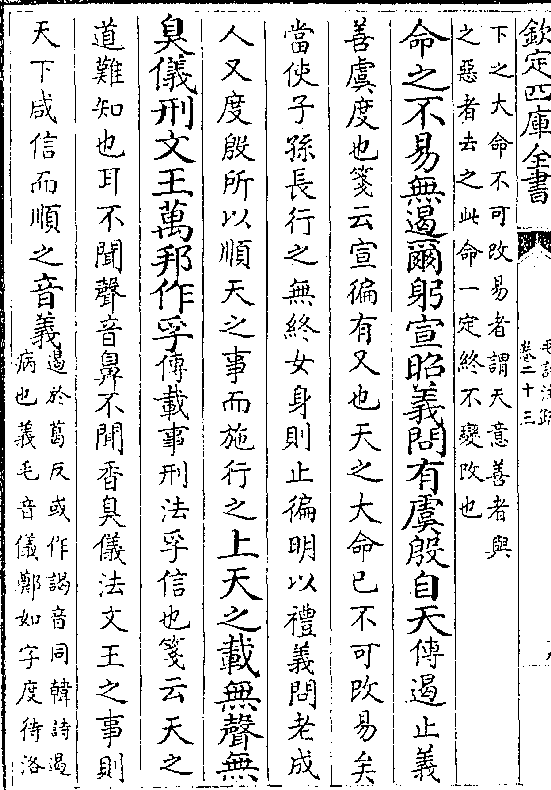 欽定四庫全書
毛詩注疏
卷二十三
下之大命不可改易者謂天意善者與
之惡者去之此命一定終不變改也
命之不易無遏爾躬宣昭義問有虞殷自天傳遏止義
善虞度也箋云宣徧有又也天之大命已不可改易矣
當使子孫長行之無終女身則止徧明以禮義問老成
人又度殷所以順天之事而施行之上天之載無聲無
臭儀刑文王萬邦作孚傳載事刑法孚信也箋云天之
道難知也耳不聞聲音鼻不聞香臭儀法文王之事則
天下咸信而順之音義
遏於葛反或作謁音同韓詩遏
病也義毛音儀鄭如字度待洛